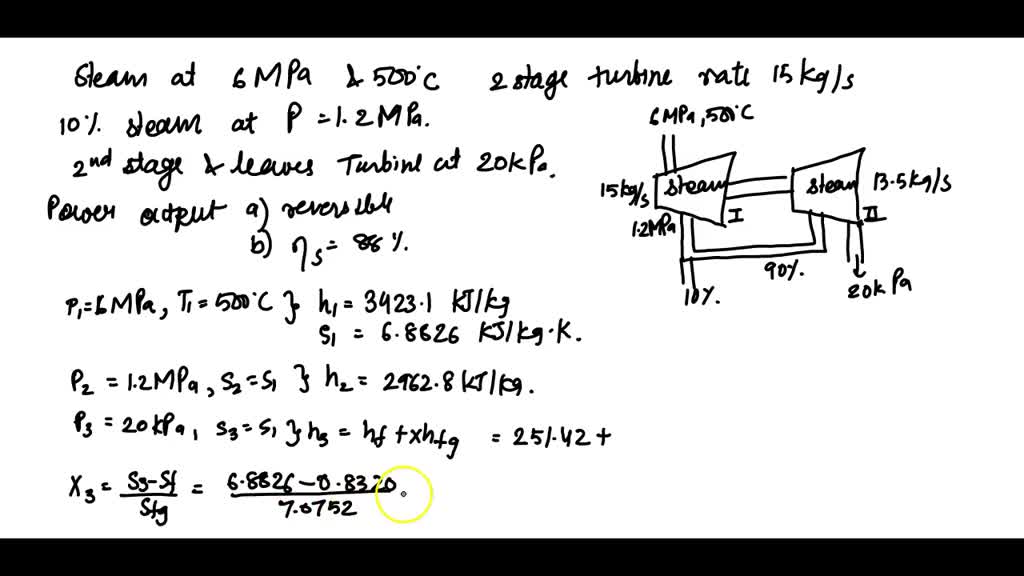 Steam at 6 MPa & 500°C 2 stage turbine rate 15 kg/s
10% steam at P = 1.2 MPa.
2nd stage & leaves Turbine at 20kPa.
Power output a) reversible
b) ηs = 88 %.
6 MPa, 500°C
15kg/s steam steam 13.5kg/s
1.2MPa I II
90%.
10%. 20k Pa
P1=6 MPa, T1 = 500°C } h1 = 3423.1 KJ/kg
S1 = 6.8826 KJ/kg·K.
P2 = 1.2 MPa, S2=S1 } h2 = 2962.8 KJ/kg.
P3 = 20kPa, S3=S1 } h3 = hf + xhfg = 251.42 +
X3 = S3-Sf / Sfg = 6.8826 - 0.8320 / 7.0752